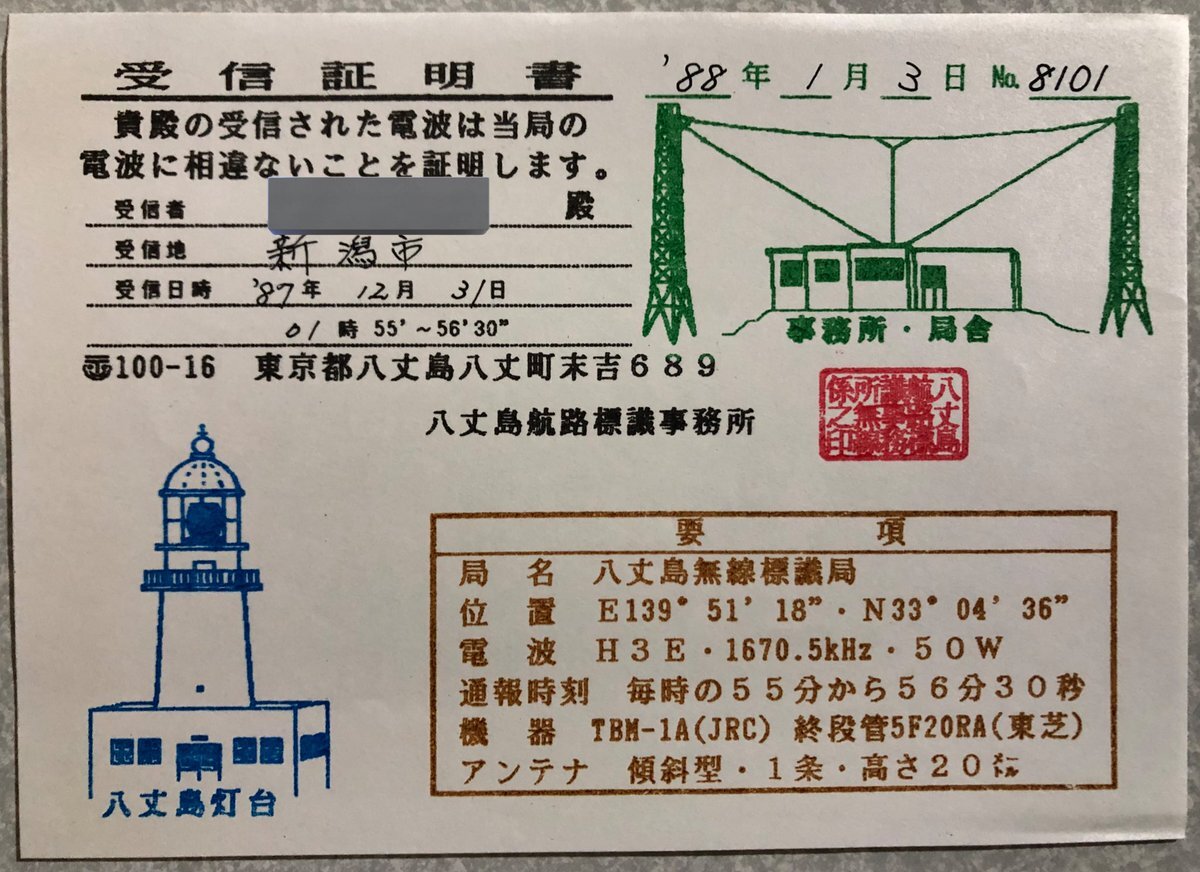 受信証明書
'88年 1月 3日 No. 8101
貴殿の受信された電波は当局の
電波に相違ないことを証明します。
受信者 殿
受信地 新潟市
受信日時 '87年 12月 31日
01時 55'～56'30"
事務所・局舎
〠100-16 東京都八丈島八丈町末吉689
八丈島航路標識事務所
八丈島
航路標識事務
所無線
係之印
要項
局名 八丈島無線標識局
位置 E139° 51' 18"・N33° 04' 36"
電波 H3E・1670.5kHz・50W
通報時刻 毎時の55分から56分30秒
機器 TBM-1A(JRC) 終段管5F20RA(東芝)
アンテナ 傾斜型・1条・高さ20㍍
八丈島灯台